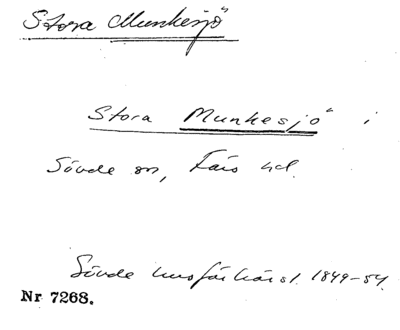 Stora Munkesjö
Stora Munkesjö i
Sövde sn, Färs hd.
Sövde husförhörsl. 1849-54.
Nr 7268.